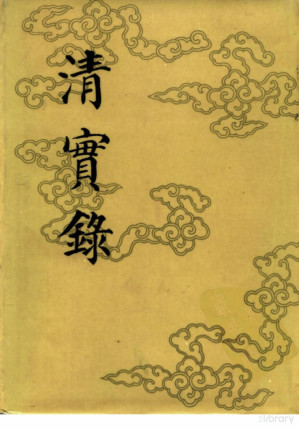 清實錄
library